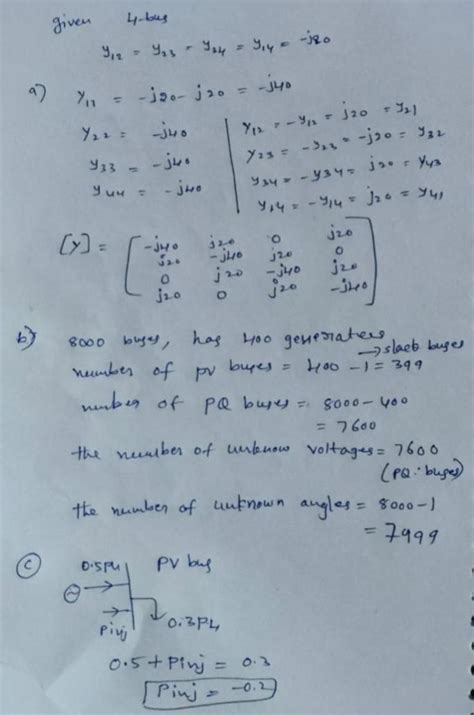 given 4-bus
y12 = y23 = y34 = y14 = -j20
a) Y11 = -j20 - j20 = -j40
Y22 = -j40
Y33 = -j40
Y44 = -j40
Y12 = -y12 = j20 = Y21
Y23 = -y23 = -j20 = Y32
Y34 = -y34 = j20 = Y43
Y14 = -y14 = j20 = Y41
[Y] = [ -j40 j20 0 j20
j20 -j40 j20 0
0 j20 -j40 j20
j20 0 j20 -j40 ]
b) 8000 buses, has 400 generators
→ slack buses
number of pv buses = 400 - 1 = 399
number of PQ buses = 8000 - 400
= 7600
the number of unknow voltages = 7600
(PQ: buses)
the number of unknown angles = 8000 - 1
= 7999
c) 0.5PU PV bus
Pinj 0.3PU
0.5 + Pinj = 0.3
Pinj = -0.2